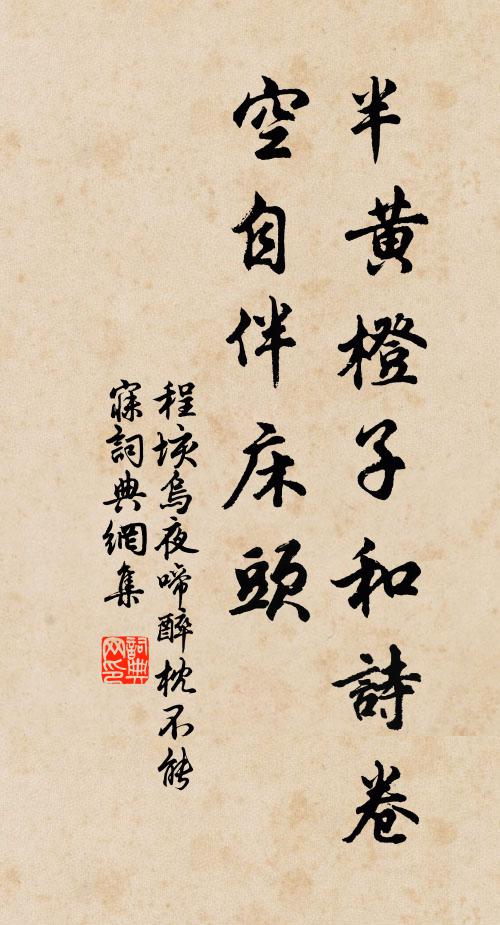 半黄橙子和詩卷
空自伴床頭
程垓烏夜啼醉枕不能
寐詞典網集
詞典
网印